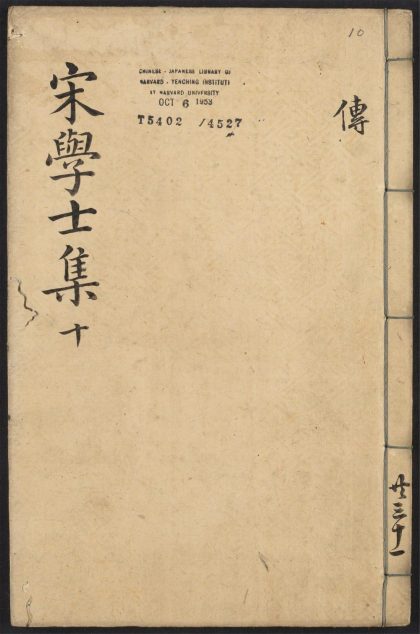 10
傳
宋學士集 十
CHINESE - JAPANESE LIBRARY OF
HARVARD - YENCHING INSTITUTE
AT HARVARD UNIVERSITY
OCT 6 1953
T5402 /4527
共三十一